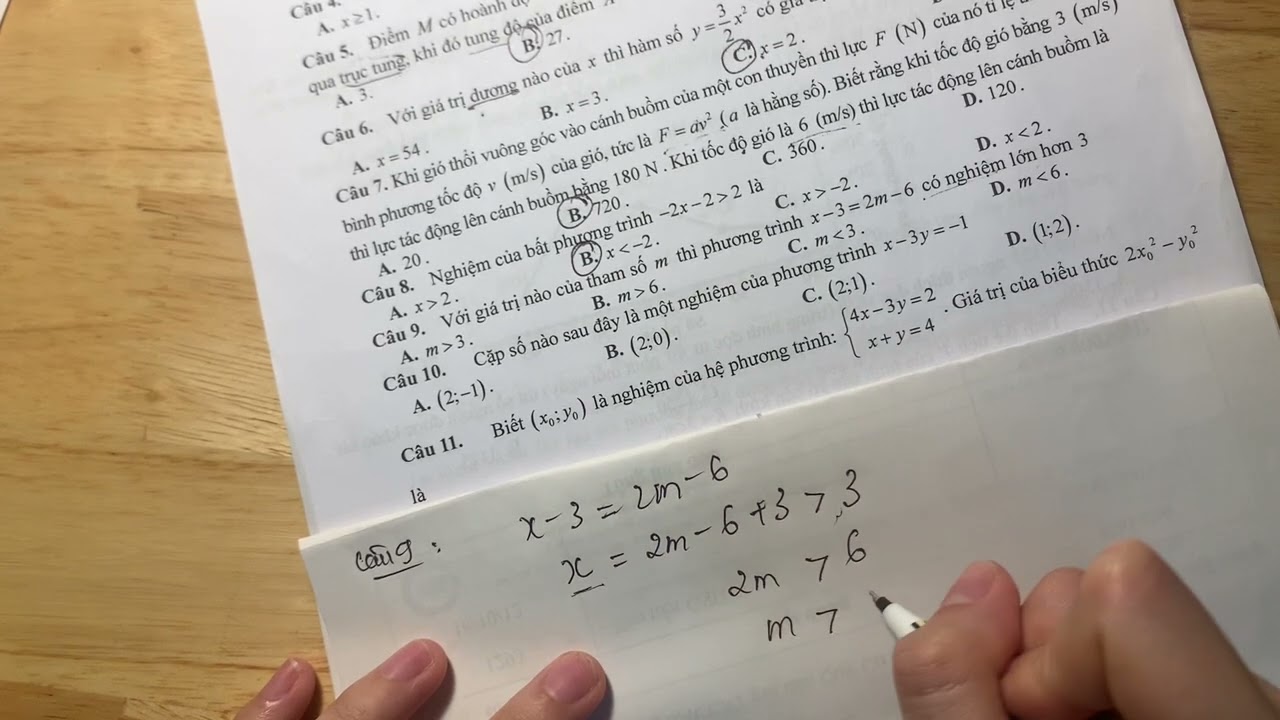 Câu 4.
A. x ≥ 1.
Câu 5. Điểm M có hoành độ
qua trục tung, khi đó tung độ của điểm A
A. 3. B. 27.
Câu 6. Với giá trị dương nào của x thì hàm số y = 3/2 x² có giá
A. x = 54. B. x = 3. C. x = 2.
Câu 7. Khi gió thổi vuông góc vào cánh buồm của một con thuyền thì lực F (N) của nó tỉ lệ
bình phương tốc độ v (m/s) của gió, tức là F = av² (a là hằng số). Biết rằng khi tốc độ gió bằng 3 (m/s)
thì lực tác động lên cánh buồm bằng 180 N. Khi tốc độ gió là 6 (m/s) thì lực tác động lên cánh buồm là
A. 20. B. 720. C. 360. D. 120.
Câu 8. Nghiệm của bất phương trình −2x − 2 > 2 là
A. x > 2. B. x < −2. C. x > −2. D. x < 2.
Câu 9. Với giá trị nào của tham số m thì phương trình x − 3 = 2m − 6 có nghiệm lớn hơn 3
A. m > 3. B. m > 6. C. m < 3. D. m < 6.
Câu 10. Cặp số nào sau đây là một nghiệm của phương trình x − 3y = −1
A. (2;−1). B. (2;0). C. (2;1). D. (1;2).
Câu 11. Biết (x₀; y₀) là nghiệm của hệ phương trình: { 4x − 3y = 2 x + y = 4 . Giá trị của biểu thức 2x₀² − y₀²
là
Câu 9 : x − 3 = 2m − 6
x = 2m − 6 + 3 > 3
2m > 6
m >